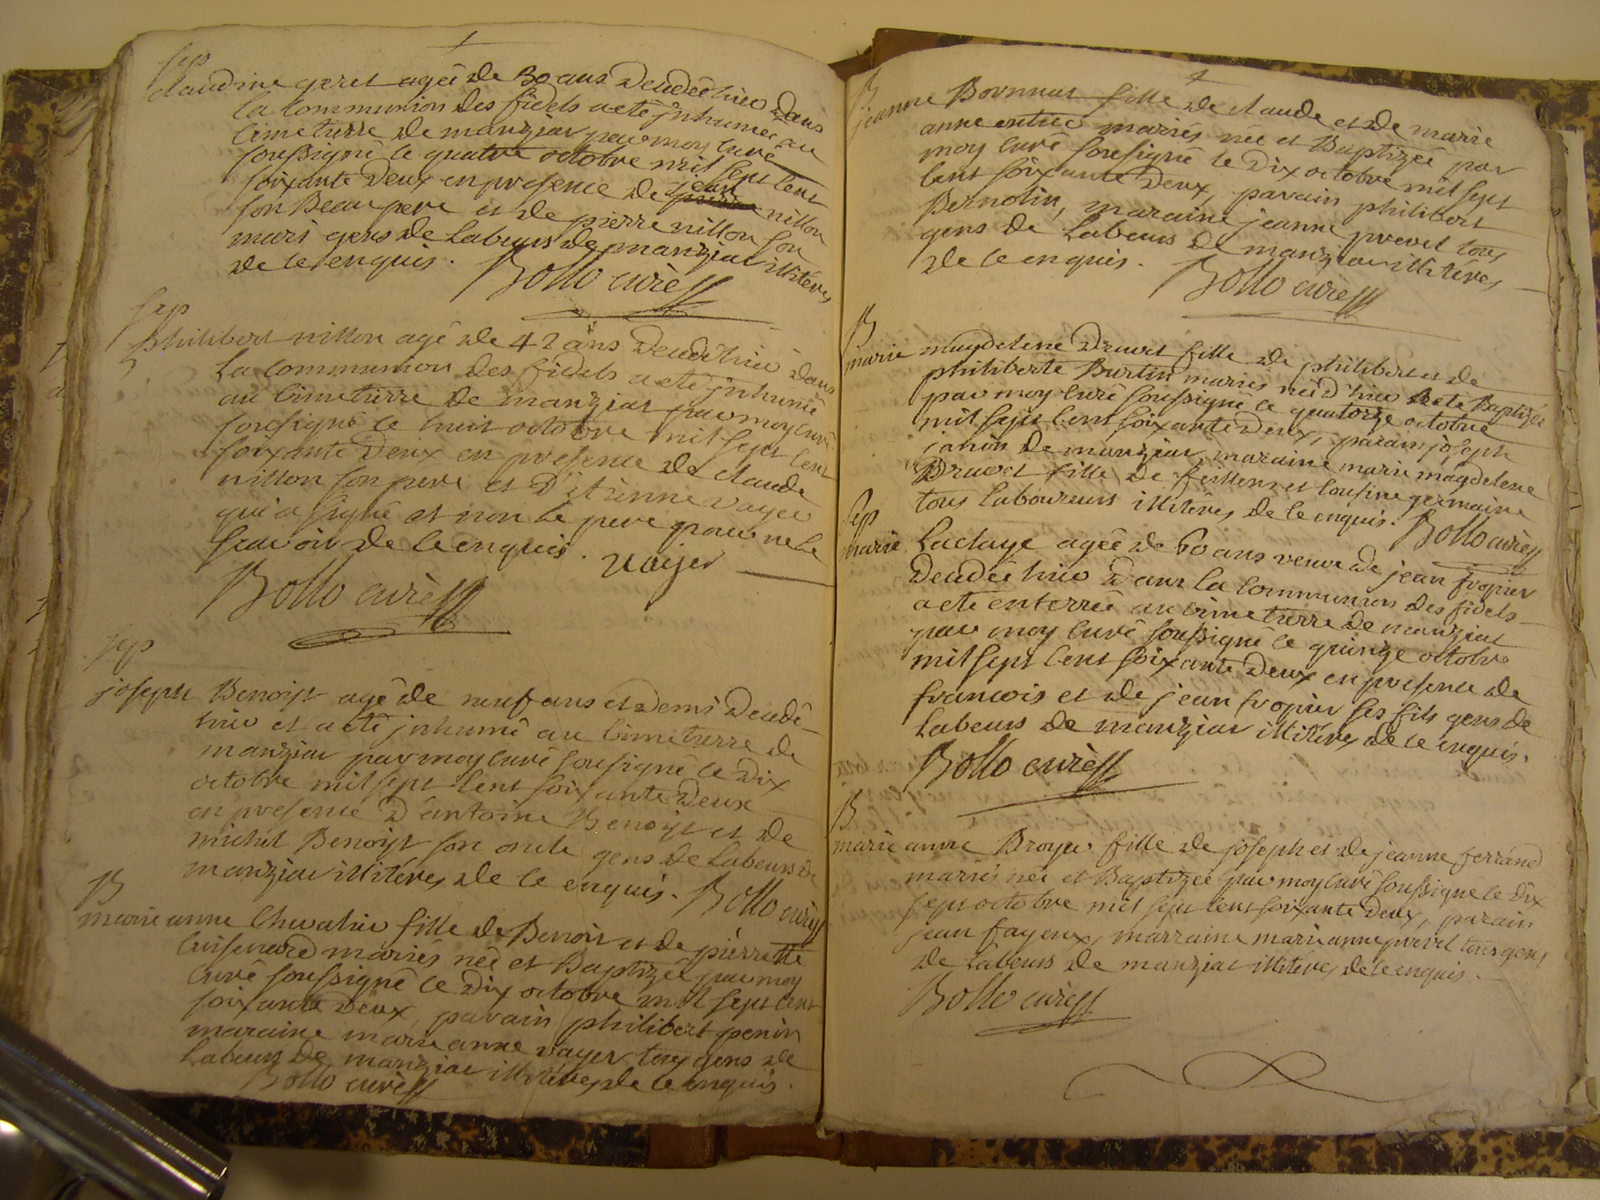 Sep
claudine geret agée de 30 ans decedée hier dans
la Communion des fidels a eté jnhumée au
Cimetierre de manziat par moy Curé
soussigné le quatre octobre mil sept Cent
soixante Deux en presence de jean nillon
son Beaupere et de pierre nillon son
mari gens de Labeurs de manziat illitéres
de ce enquis. Bollo curé
Sep
philibert nillon agé de 42 ans decedé hier dans
La Communion des fidels a eté jnhumé
au Cimetierre de manziat par moy Curé
soussigné le huit octobre mil sept Cent
soixante Deux en presence de claude
nillon son pere et D'etienne vayer
qui a signé et non le pere pour ne le
scavoir de ce enquis. vayer
Bollo curé
Sep
joseph Benoist agé de neuf ans et demi decedé
hier et a eté jnhumé au Cimetierre de
manziat par moy Curé sousigné le Dix
octobre mil sept Cent soixante Deux
en presence D'antoine Benoist et de
michel Benoist son oncle gens de Labeurs de
manziat illitéres de ce enquis. Bollo curé
B
marie anne Chevalier fille de Benoit et de pierrette
Cuisenard mariés née et Baptizée par moy
Curé soussigné le Dix octobre mil sept Cent
soixante Deux, parain philibert penin
maraine marie anne vayer tous gens de
Labeurs de manziat illitéres de ce enquis.
Bollo curé
B
jeanne Bornuat fille de claude et de marie
anne mariés née et Baptizée par
moy Curé sousigné le Dix octobre mil sept
Cent soixante Deux, parain philibert
Bernolin, maraine jeanne prevel tous
gens de Labeurs de manziat illitéres
de ce enquis.
Bollo curé
B
marie magdelene Druvet fille de philibert et de
philiberte Burtin mariés née d'hier a eté Baptizée
par moy Curé soussigné le quatorze octobre
mil sept Cent soixante Deux, parain joseph
janin de manziat, maraine marie magdelene
Druvet fille de et Cousine germaine
tous Laboureurs illitéres de ce enquis. Bollo curé
Sep
marie Laclaye agée de 60 ans veuve de jean fropier
Decedée hier Dans la Communion des fidels
a eté enterrée au Cimetierre de manziat
par moy Curé soussigné le quinze octobre
mil sept Cent soixante Deux en presence de
francois et de jean fropier ses fils gens de
Labeurs de manziat illitéres de ce enquis.
Bollo curé
B
marie anne Broyer fille de joseph et de jeanne ferrand
mariés née et Baptizée par moy Curé soussigné le Dix
sept octobre mil sept Cent soixante Deux, parain
jean fayeux, marraine marie anne prevel tous gens
de Labeurs de manziat illitéres de ce enquis.
Bollo curé